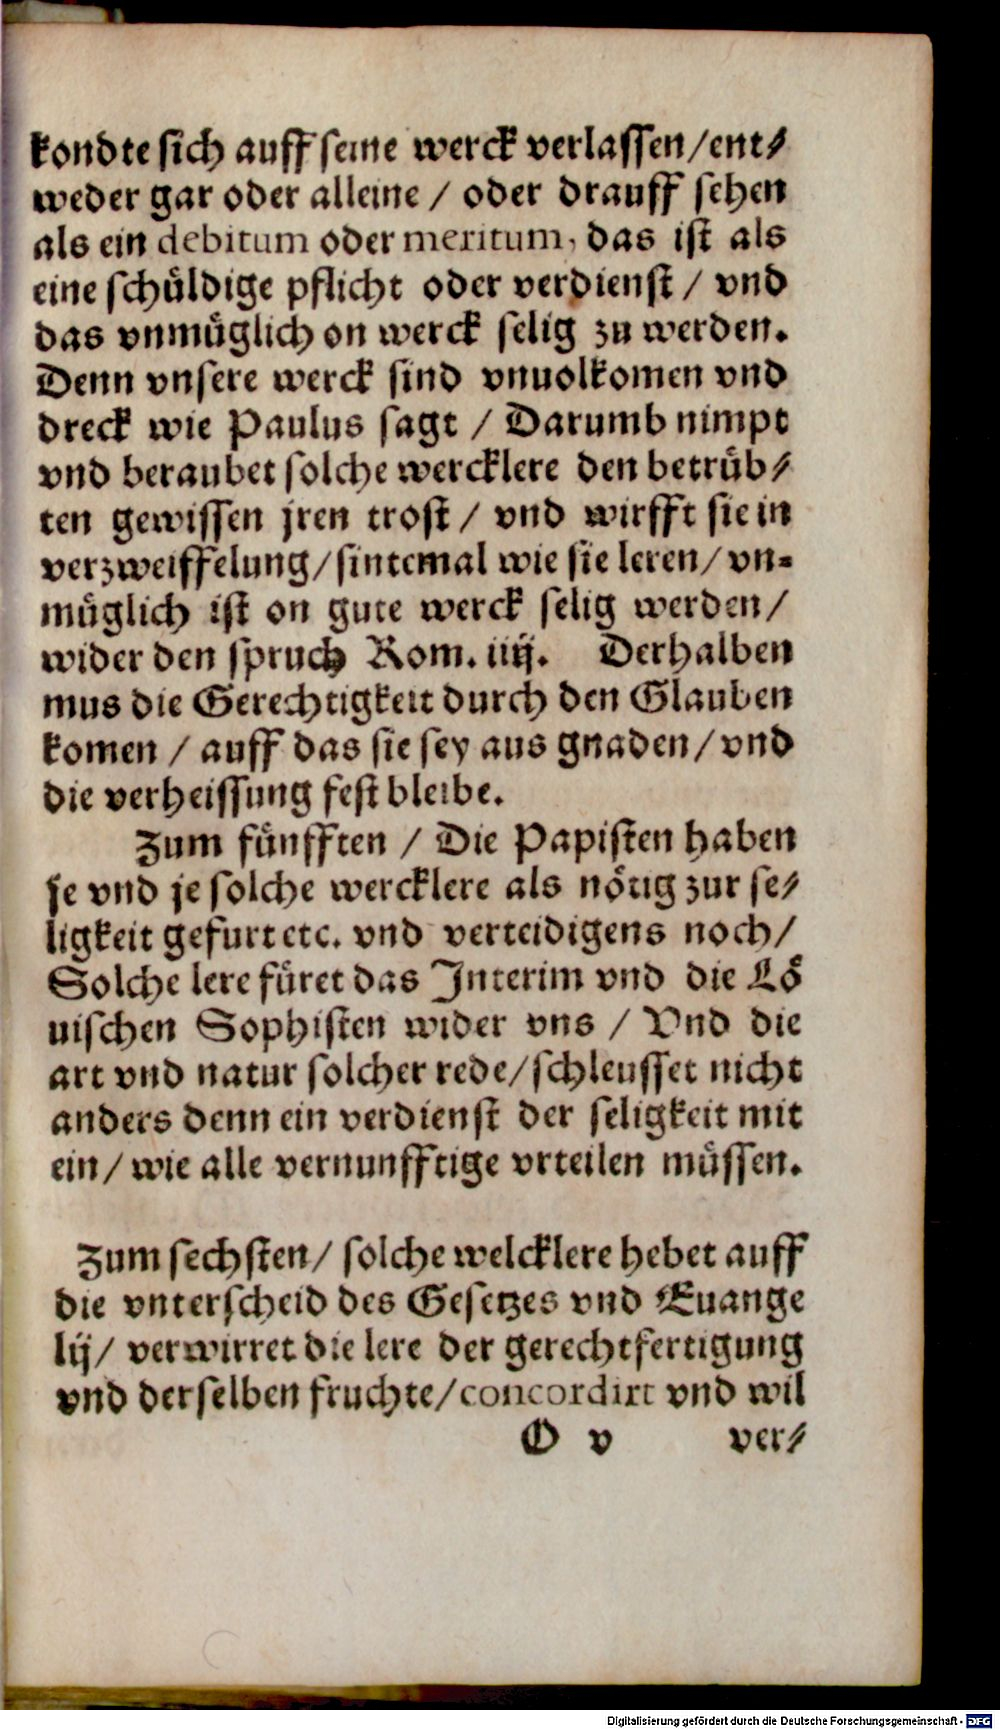 kondte sich auff seine werck verlassen/ent⸗
weder gar oder alleine / oder drauff sehen
als ein debitum oder meritum, das ist als
eine schüldige pflicht oder verdienst / vnd
das vnmüglich on werck selig zu werden.
Denn vnsere werck sind vnuolkomen vnd
dreck wie Paulus sagt / Darumb nimpt
vnd beraubet solche wercklere den betrüb⸗
ten gewissen jren trost / vnd wirfft sie in
verzweiffelung/sintemal wie sie leren/ vn-
müglich ist on gute werck selig werden/
wider den spruch Rom. iiij. Derhalben
mus die Gerechtigkeit durch den Glauben
komen / auff das sie sey aus gnaden/ vnd
die verheissung fest bleibe.
Zum fünfften / Die Papisten haben
je vnd je solche wercklere als nötig zur se⸗
ligkeit gefurt etc. vnd verteidigens noch/
Solche lere füret das Interim vnd die Lö
uischen Sophisten wider vns / Vnd die
art vnd natur solcher rede/schleusset nicht
anders denn ein verdienst der seligkeit mit
ein/ wie alle vernunfftige vrteilen müssen.
Zum sechsten/ solche welcklere hebet auff
die vnterscheid des Gesetzes vnd Euange
lij/ verwirret die lere der gerechtfertigung
vnd derselben fruchte/concordirt vnd wil
O v ver⸗
Digitalisierung gefördert durch die Deutsche Forschungsgemeinschaft - DFG